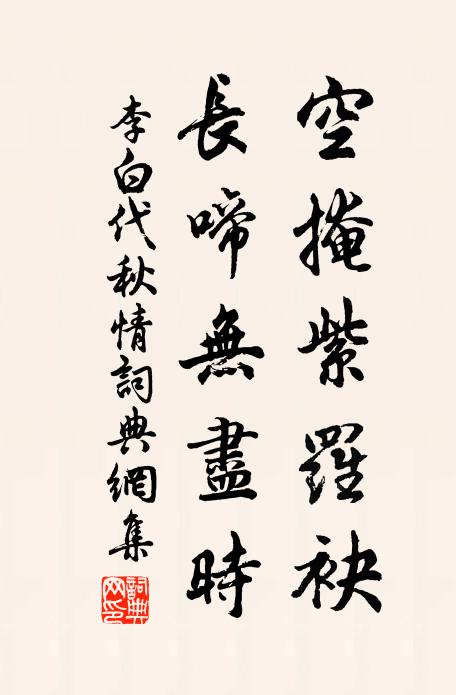 空掩紫羅袂
長啼無盡時
李白代秋情詞典網集
詞典网印